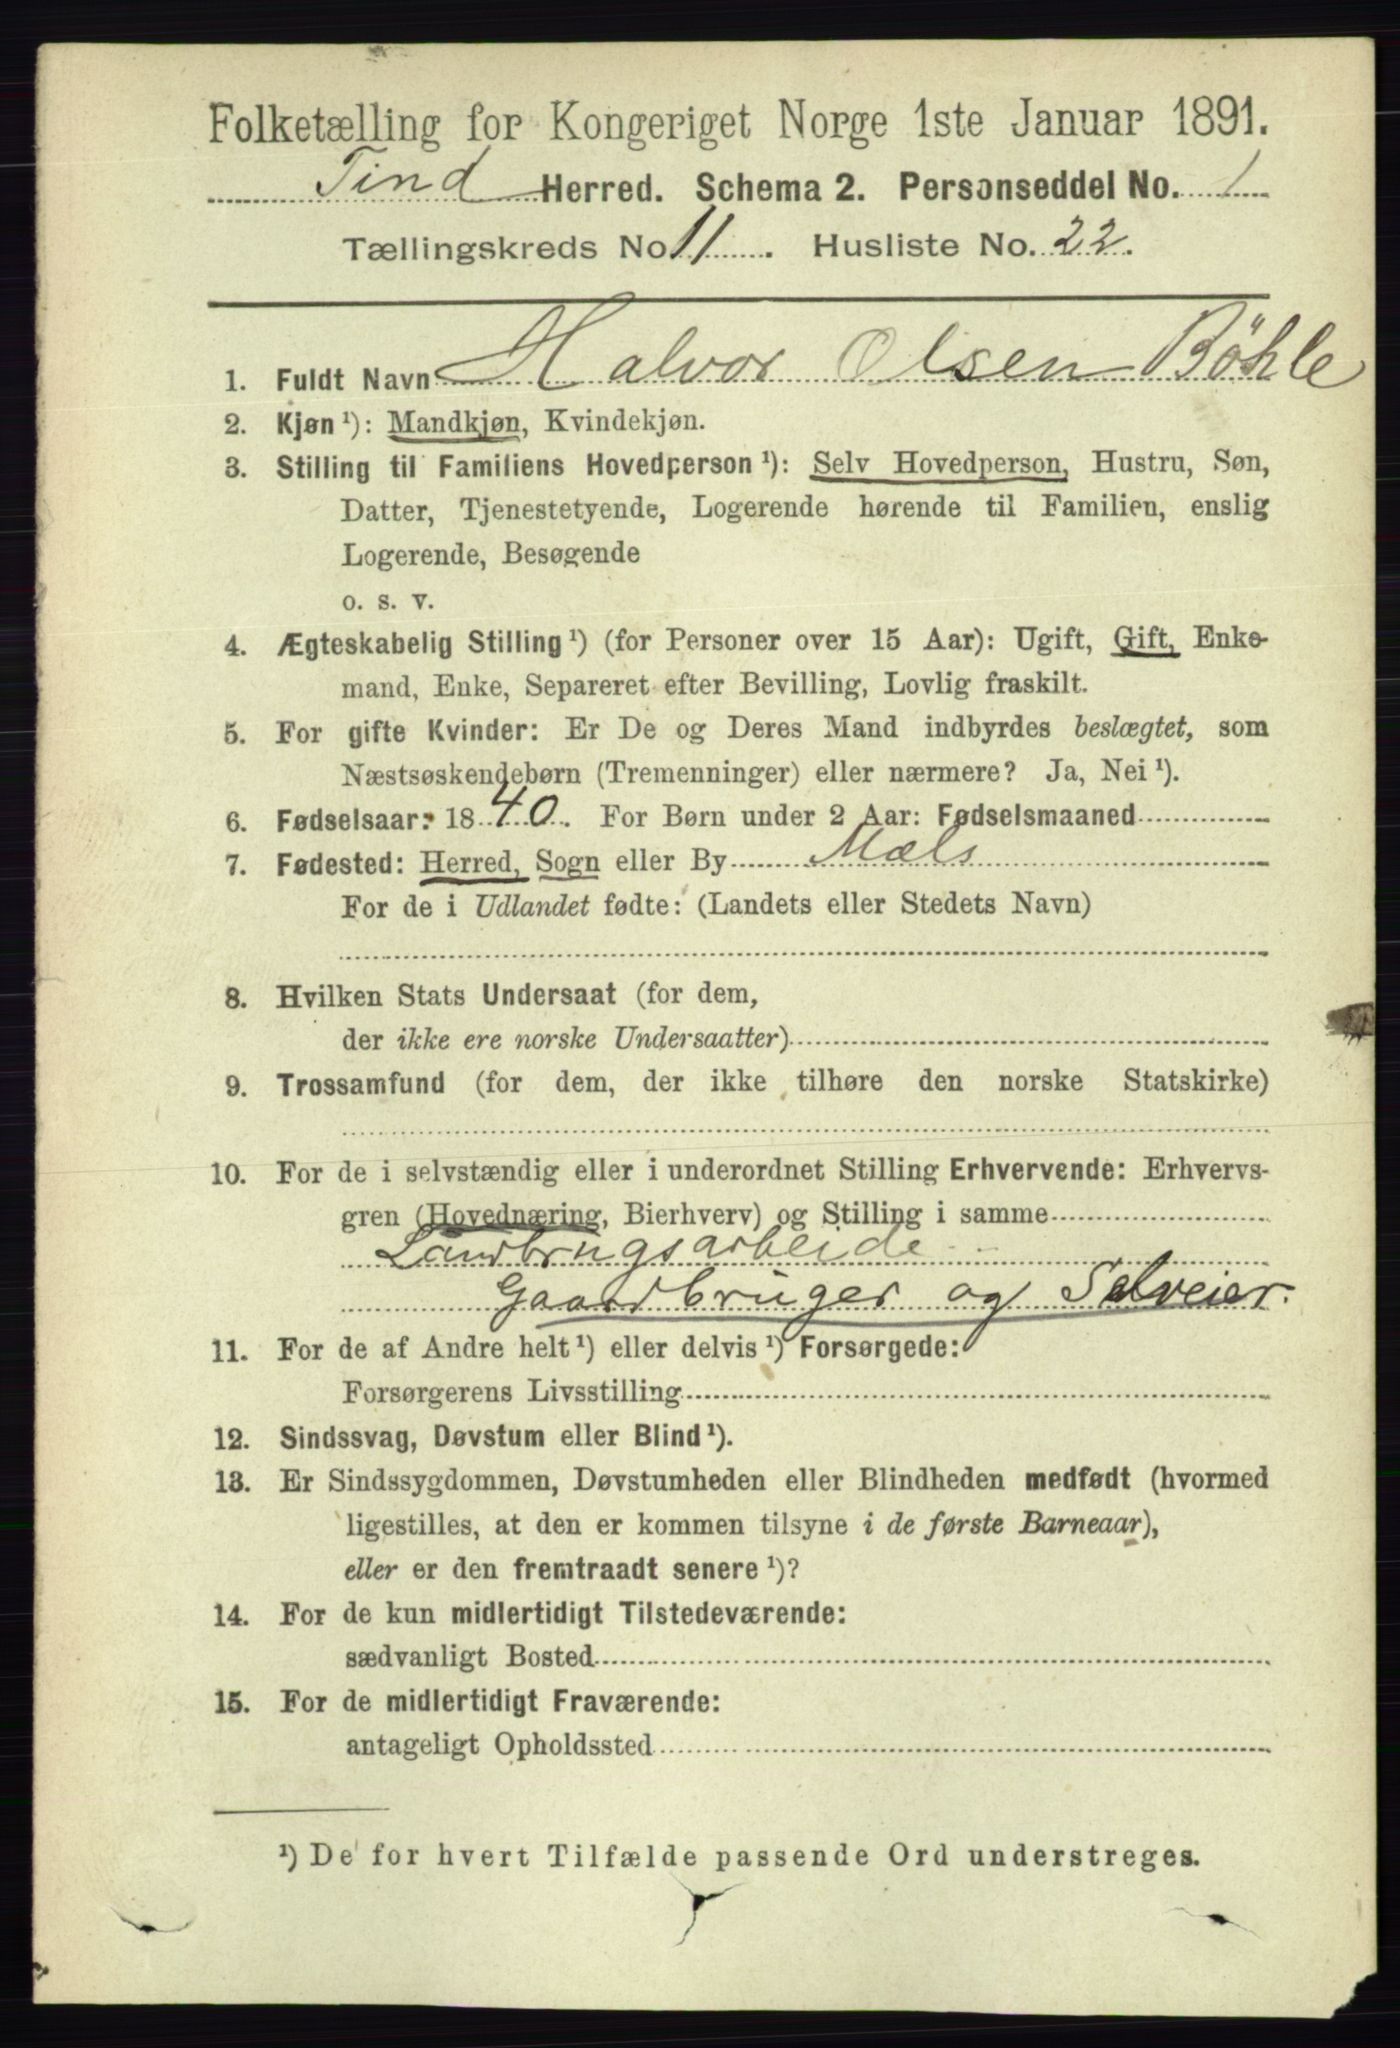 Folketælling for Kongeriget Norge 1ste Januar 1891.
Tind Herred. Schema 2. Personseddel No. 1
Tællingskreds No 11. Husliste No. 22.
1. Fuldt Navn Halvor Olsen Böhle
2. Kjøn ¹): Mandkjøn, Kvindekjøn.
3. Stilling til Familiens Hovedperson ¹): Selv Hovedperson, Hustru, Søn,
Datter, Tjenestetyende, Logerende hørende til Familien, enslig
Logerende, Besøgende
o. s. v.
4. Ægteskabelig Stilling ¹) (for Personer over 15 Aar): Ugift, Gift, Enke-
mand, Enke, Separeret efter Bevilling, Lovlig fraskilt.
5. For gifte Kvinder: Er De og Deres Mand indbyrdes beslægtet, som
Næstsøskendebørn (Tremenninger) eller nærmere? Ja, Nei ¹).
6. Fødselsaar: 1840. For Børn under 2 Aar: Fødselsmaaned
7. Fødested: Herred, Sogn eller By Mæls
For de i Udlandet fødte: (Landets eller Stedets Navn)
8. Hvilken Stats Undersaat (for dem,
der ikke ere norske Undersaatter)
9. Trossamfund (for dem, der ikke tilhøre den norske Statskirke)
10. For de i selvstændig eller i underordnet Stilling Erhvervende: Erhvervs-
gren (Hovednæring, Bierhverv) og Stilling i samme
Landbrugsarbeide
Gaardbruger og Selveier.
11. For de af Andre helt ¹) eller delvis ¹) Forsørgede:
Forsørgerens Livsstilling
12. Sindssvag, Døvstum eller Blind ¹).
13. Er Sindssygdommen, Døvstumheden eller Blindheden medfødt (hvormed
ligestilles, at den er kommen tilsyne i de første Barneaar),
eller er den fremtraadt senere ¹)?
14. For de kun midlertidigt Tilstedeværende:
sædvanligt Bosted
15. For de midlertidigt Fraværende:
antageligt Opholdssted
¹) De for hvert Tilfælde passende Ord understreges.